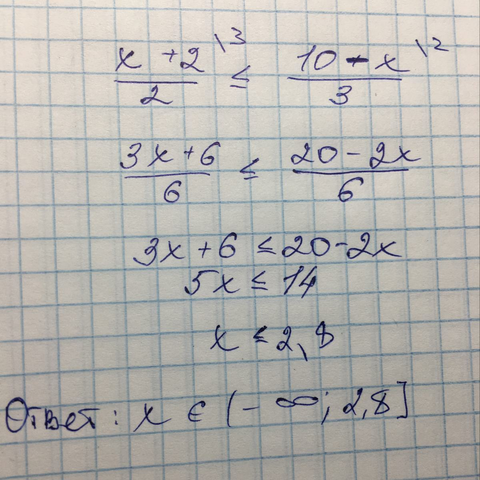 x + 2 \3 ≤ 10 - x \2
2 3
3x + 6 ≤ 20 - 2x
6 6
3x + 6 ≤ 20 - 2x
5x ≤ 14
x ≤ 2,8
Ответ: x ∈ (-∞; 2,8]